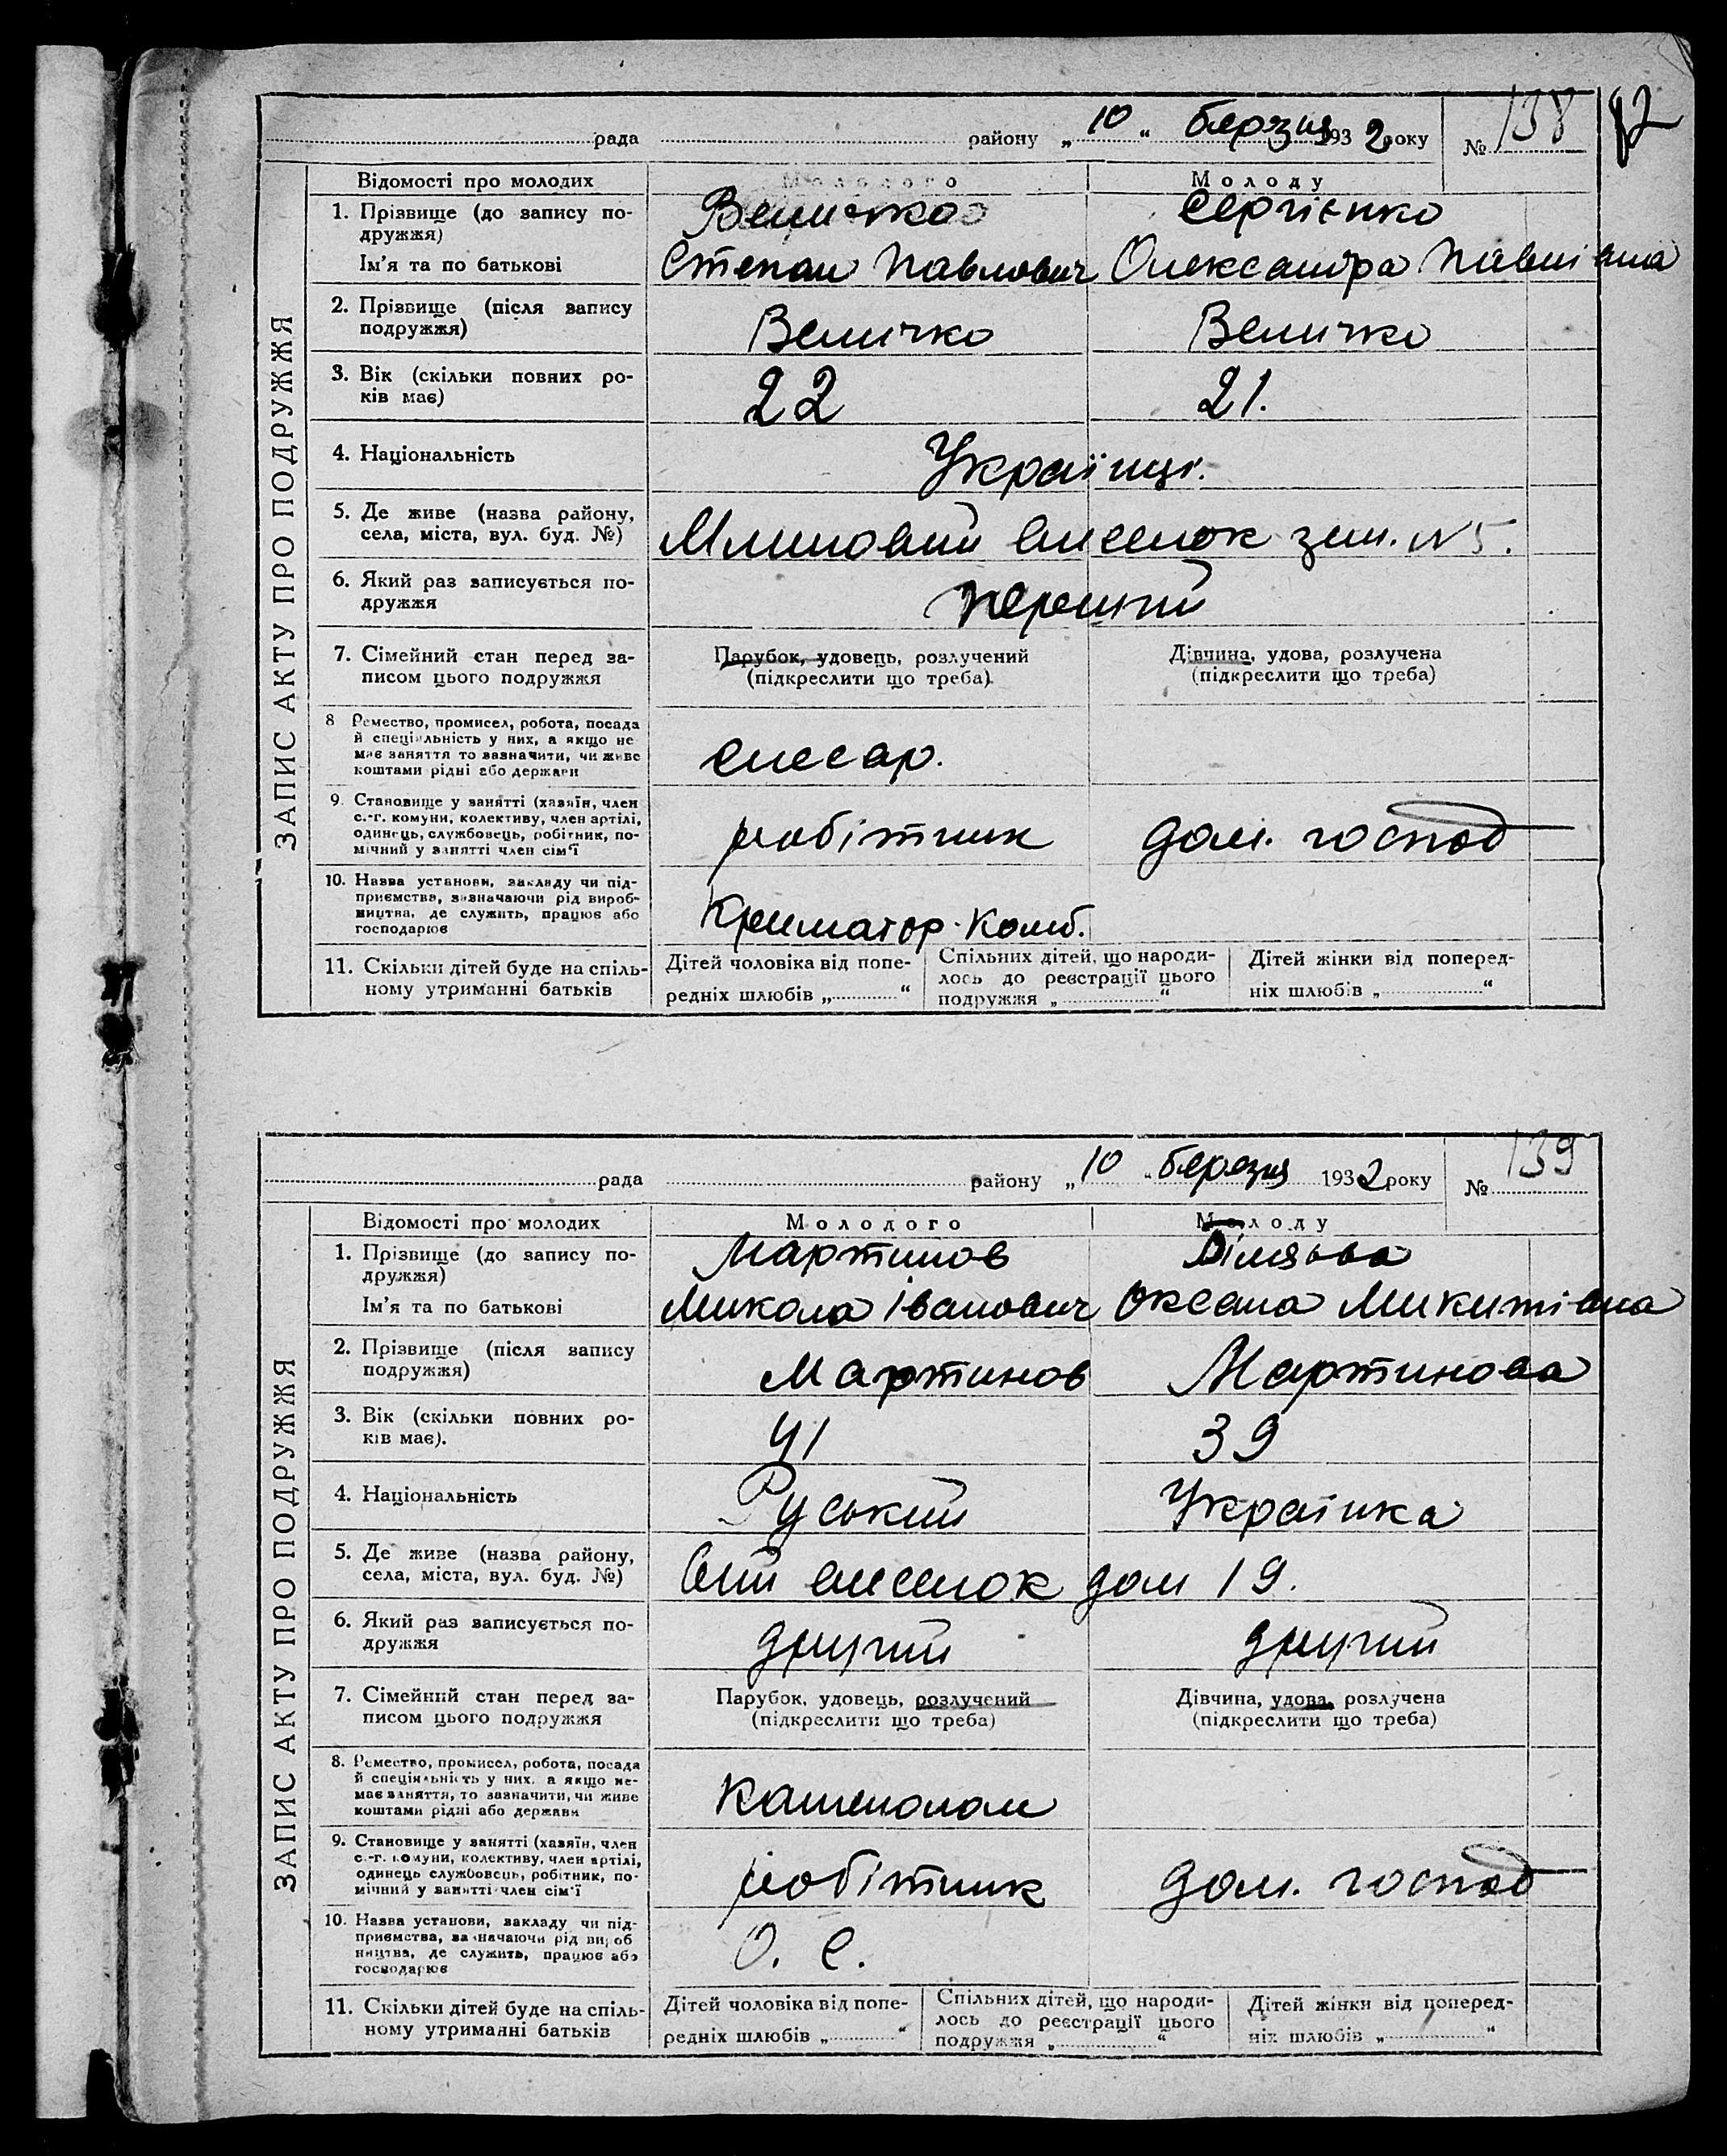 рада району „ 10 “ березня 1932 року № 138
82
ЗАПИС АКТУ ПРО ПОДРУЖЖЯ
Відомості про молодих Молодого Молоду
1. Прізвище (до запису по- Величко Сергієнко
дружжя)
Ім'я та по батькові Степан Павлович Олександра Павлівна
2. Прізвище (після запису Величко Величко
подружжя)
3. Вік (скільки повних ро- 22 21.
ків має)
4. Національність Українці.
5. Де живе (назва району,
села, міста, вул. буд. №) Млиновий виселок зем. №5.
6. Який раз записується по- перший
дружжя
7. Сімейний стан перед за- Парубок, удовець, розлучений Дівчина, удова, розлучена
писом цього подружжя (підкреслити що треба). (підкреслити що треба)
8 Ремество, промисел, робота, посада
й спеціяльність у них, а якщо не
має заняття то зазначити, чи живе слесар.
коштами рідні або держави
9. Становище у занятті (хазяїн, член
с.-г. комуни, колективу, член артілі,
одинець, службовець, робітник, по- робітник дом. господ
мічний у занятті член сім'ї
10. Назва установи, закладу чи під-
приємства, зазначаючи рід вироб-
ництва, де служить, працює або Краматор. Комб.
господарює
11. Скільки дітей буде на спіль- Дітей чоловіка від попе- Спільних дітей, що народи- Дітей жінки від поперед-
ному утриманні батьків редніх шлюбів „ “ лось до реєстрації цього ніх шлюбів „ “
подружжя „ “
рада району „ 10 “ березня 1932 року № 139
ЗАПИС АКТУ ПРО ПОДРУЖЖЯ
Відомості про молодих Молодого Молоду
1. Прізвище (до запису по- Мартинов
дружжя)
Ім'я та по батькові Микола Іванович Оксана Микитівна
2. Прізвище (після запису Мартинов Мартинова
подружжя)
3. Вік (скільки повних ро- 41 39
ків має).
4. Національність Руський Українка
5. Де живе (назва району,
села, міста, вул. буд. №) виселок дом 19.
6. Який раз записується по- другий другий
дружжя
7. Сімейний стан перед за- Парубок, удовець, розлучений Дівчина, удова, розлучена
писом цього подружжя (підкреслити що треба) (підкреслити що треба)
8. Ремество, промисел, робота, посада
й спеціяльність у них, а якщо не-
має заняття, то зазначити, чи живе каменолом
коштами рідні або держави
9. Становище у занятті (хазяїн, член
с.-г. комуни, колективу, член артілі,
одинець службовець, робітник, по- робітник дом. господ
мічний у занятті член сім'ї
10. Назва установи, закладу чи під-
приємства, зазначаючи рід вироб О. С.
ництва, де служить, працює або
господарює
11. Скільки дітей буде на спіль- Дітей чоловіка від попе- Спільних дітей, що народи- Дітей жінки від поперед-
ному утриманні батьків редніх шлюбів „ “ лось до реєстрації цього ніх шлюбів „ “
подружжя „ “